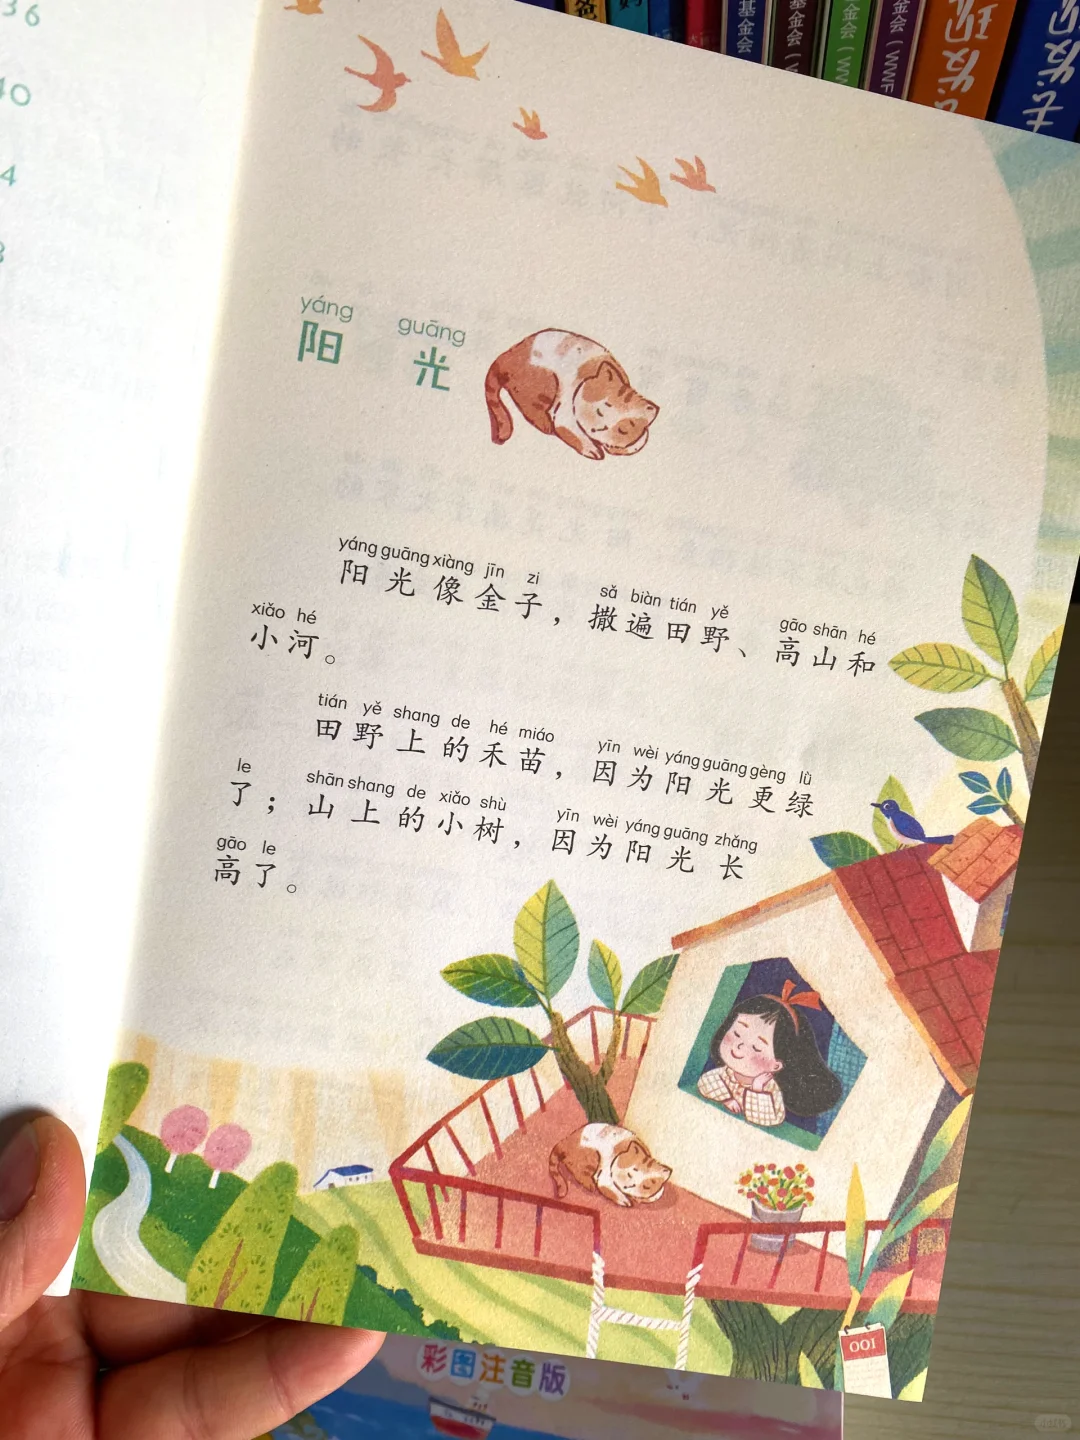 36
40
4
基金会
基金会(WWF
金会(WW
金会(WWF
去发现
去发现
yáng guāng
阳光
yáng guāng xiàng jīn zi sǎ biàn tián yě gāo shān hé
阳光像金子，撒遍田野、高山和
xiǎo hé
小河。
tián yě shang de hé miáo yīn wèi yáng guāng gèng lǜ
田野上的禾苗，因为阳光更绿
le shān shang de xiǎo shù yīn wèi yáng guāng zhǎng
了；山上的小树，因为阳光长
gāo le
高了。
001
彩图注音版